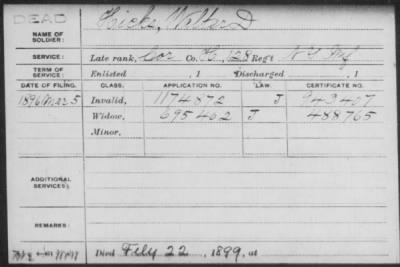 DEAD
NAME OF SOLDIER: Hicks, Walter D
SERVICE: Late rank, Cor Co. H, 128 Reg't N Y Inf
TERM OF SERVICE: Enlisted , 1 Discharged , 1
DATE OF FILING. CLASS. APPLICATION NO. LAW. CERTIFICATE NO.
1896 Mar 5 Invalid, 1174872 J 943407
Widow, 695402 J 488765
Minor,
ADDITIONAL SERVICES:
REMARKS:
Died Feby 22, 1899, at